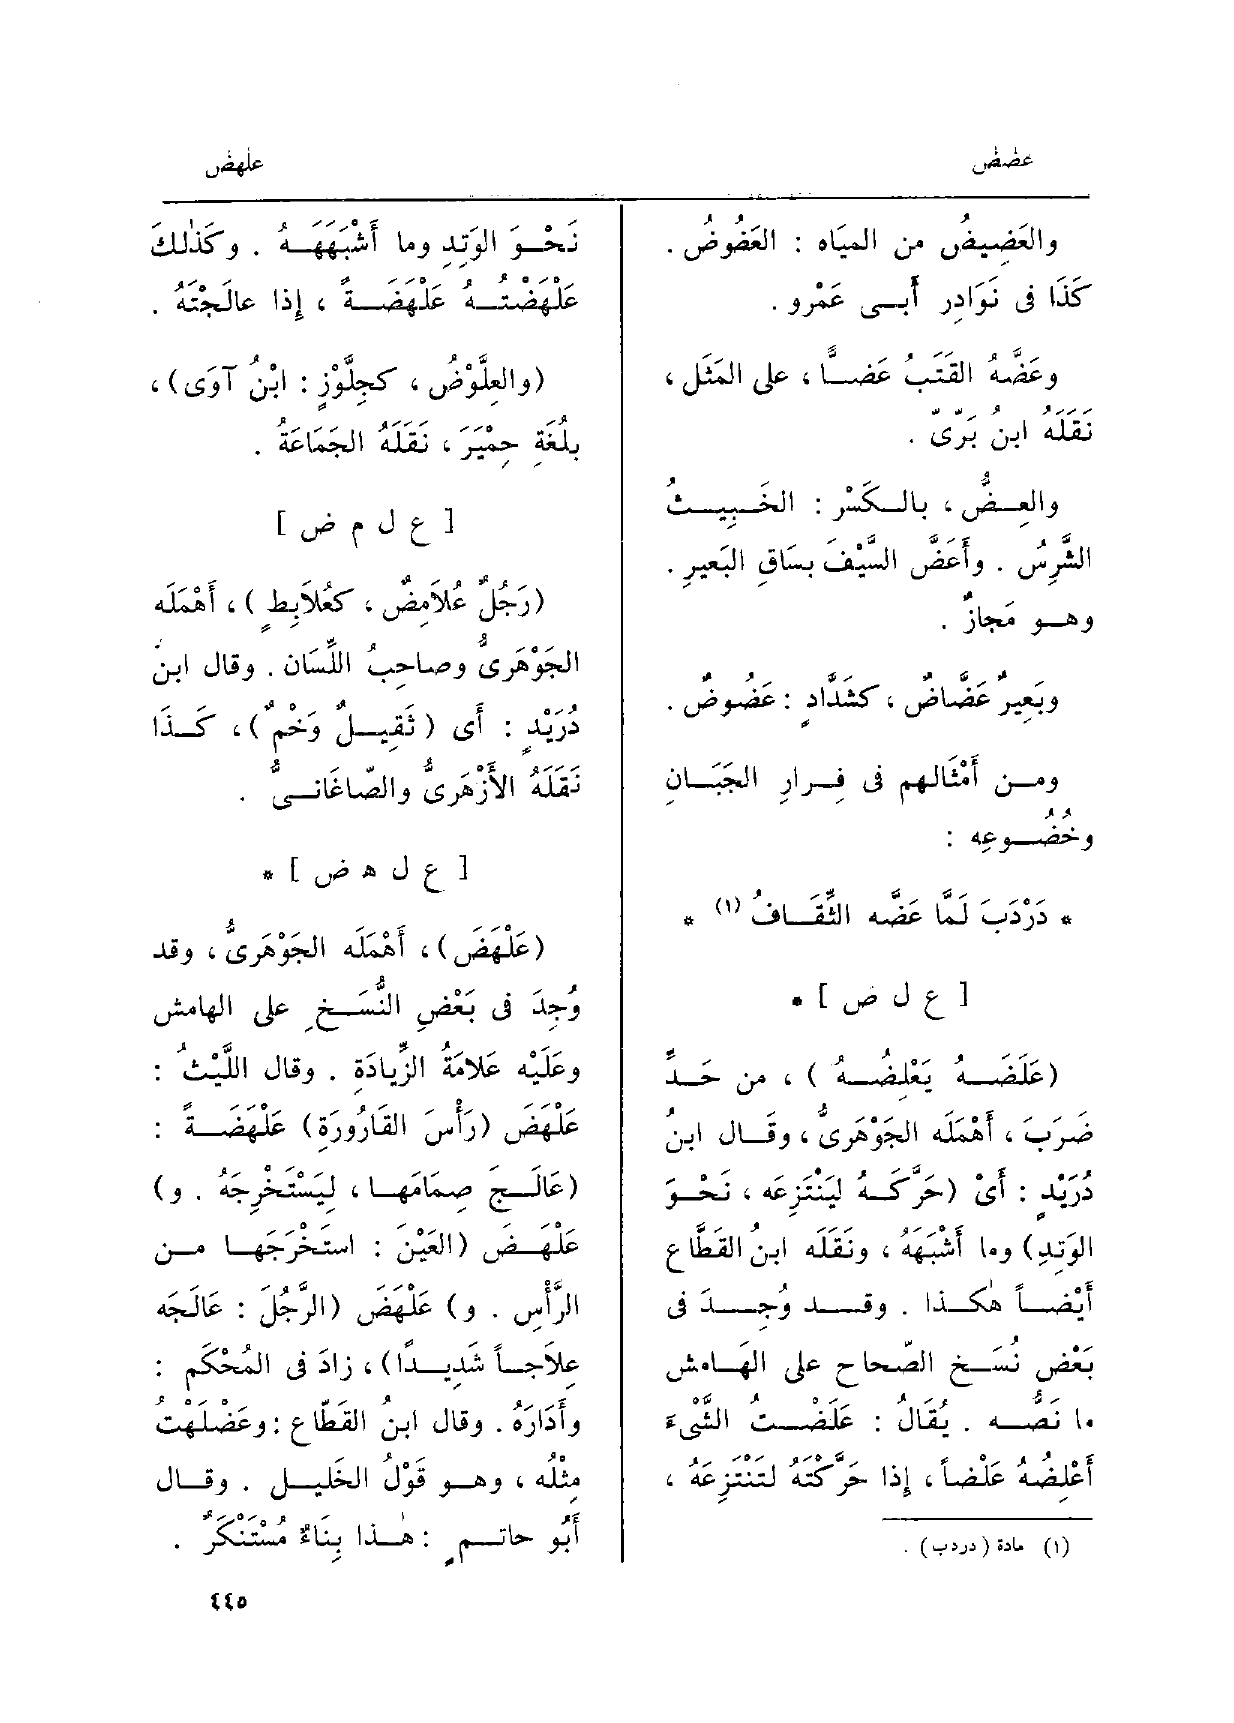 عضض
علهض
والعَضِيضُ من المِيَاه : العَضُوضُ .
كَذَا فى نَوَادِر أَبــى عَمْرو .
وعَضَّهُ القَتَبُ عَضــًّا ، على المَثَل ،
نَقَلَهُ ابن بَرّىّ .
والعِــضُّ ، بالــكَسْر : الخَــبِيــثُ
الشَّرِسُ . وأَعَضَّ السَّيْفَ بسَاقِ البَعيرِ .
وهــو مَجازٌ .
وبَعِيرٌ عَضَّاضٌ ، كشَدَّادٍ : عَضُوضٌ .
ومــن أَمْثَالهم فى فِــرارِ الجَبَــانِ
وخُضُــوعِه :
* دَرْدَبَ لَمَّا عَضَّه الثِّقَــافُ (١) *
[ ع ل ض ] *
(عَلَضَــهُ يَعْلِضُــهُ ) ، من حَــدِّ
ضَرَبَ ، أَهْمَله الجَوْهَرِىُّ ، وقَــال ابنُ
دُرَيْدٍ : أَىْ (حَرَّكَــهُ لِيَنْتَزِعَه ، نَحْــوَ
الوَتِدِ) وما أَشْبَهَهُ ، ونَقَلَه ابنُ القَطَّاع
أَيْضــاً هٰكــذا . وقــد وُجِــدَ فى
بَعْض نُسَــخ الصّحاح على الهَــامش
ما نَصُّــه . يُقَالُ : عَلَضْــتُ الشَّىْءَ
أَعْلِضُهُ عَلْضاً ، إِذا حَرَّكْتَهُ لتَنْتَزِعَهُ ،
(١) مادة (دردب) .
نَحْــوَ الوَتِدِ وما أَشْبَهَهــهُ . وكَذٰلكَ
عَلْهَضْتُــهُ عَلْهَضَــةً ، إِذا عالَجْتَهُ .
(والعِلَّوْضُ ، كجِلَّوْزٍ : ابْنُ آوَى) ،
بلُغَةِ حِمْيَرَ ، نَقَلَهُ الجَمَاعَةُ .
[ ع ل م ض ]
(رَجُلٌ عُلاَمِضٌ ، كعُلاَبِطٍ ) ، أَهْمَلَه
الجَوْهَرِىُّ وصاحبُ اللِّسَان . وقال ابنُ
دُرَيْدٍ : أَى ( ثَقِيــلٌ وَخْمٌ ) ، كَــذَا
نَقَلَهُ الأَزْهَرِىُّ والصّاغَانــىُّ .
[ ع ل ه ض ] *
(عَلْهَضَ) ، أَهْمَلَه الجَوْهَرِىُّ ، وقد
وُجِدَ فى بَعْضِ النُّسَــخِ على الهامش
وعَلَيْه عَلاَمَةُ الزِّيَادَةِ . وقال اللَّيْثُ :
عَلْهَضَ (رَأْسَ القَارُورَة) عَلْهَضَــةً :
(عَالَــجَ صِمَامَهــا ، لِيَسْتَخْرِجَهُ . و)
عَلْهَــضَ (العَيْنَ : استَخْرَجَهــا مــن
الرَّأْس . و) عَلْهَضَ (الرَّجُلَ : عَالَجَه
عِلاَجــاً شَدِيــدًا) ، زادَ فى المُحْكَم :
وأَدَارَهُ . وقال ابنُ القَطّاع : وعَضْلَهْتُ
مِثْلُه ، وهــو قَوْلُ الخَلِيــل . وقــال
أَبُو حاتــمٍ : هٰــذا بِنَاءٌ مُسْتَنْكَرٌ .
٤٤٥